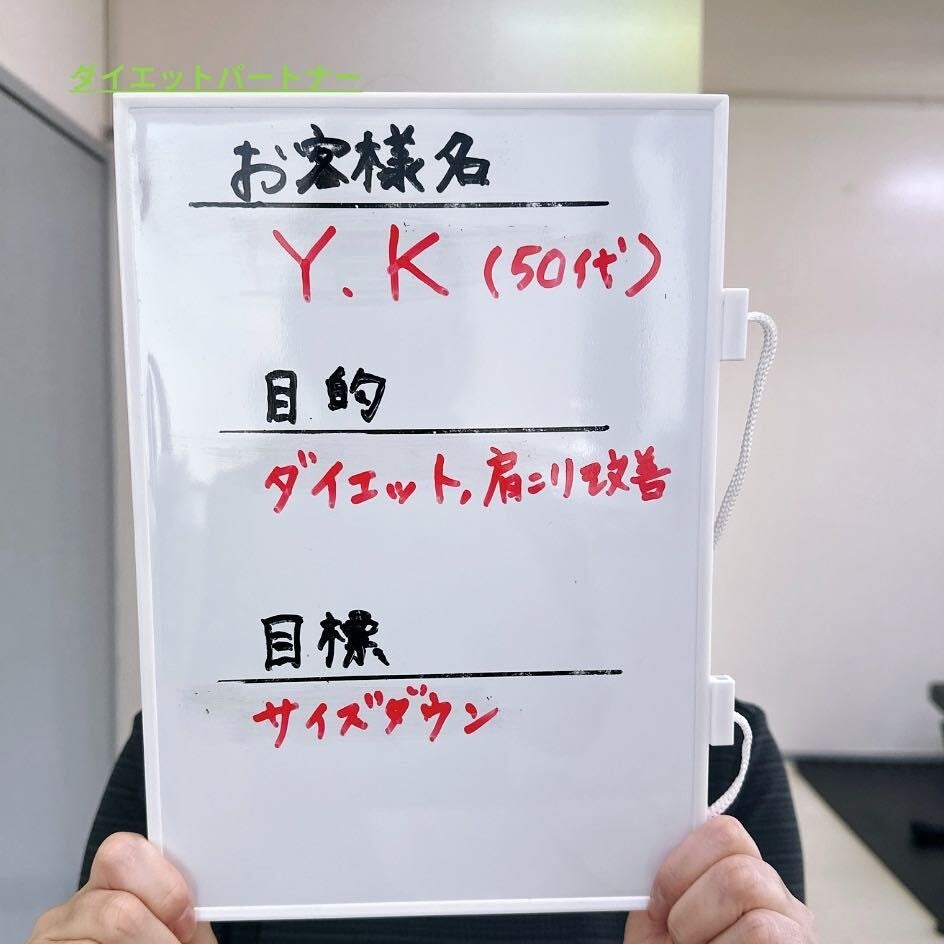 ダイエットパートナー
お客様名
Y.K (50代)
目的
ダイエット,肩こり改善
目標
サイズダウン